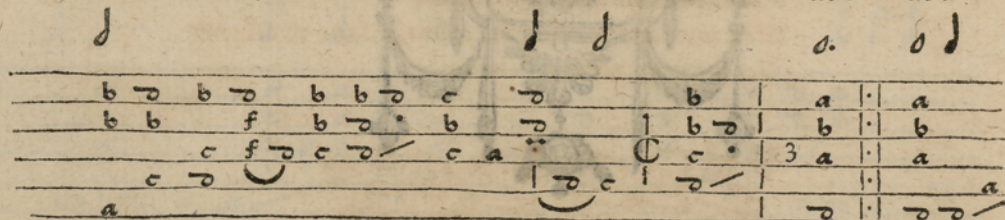 b d b d b b d c d b a a
b b f b d b d b d b b
c f d c d c a ¢ c 3 a a
c d d c d a
a d d d